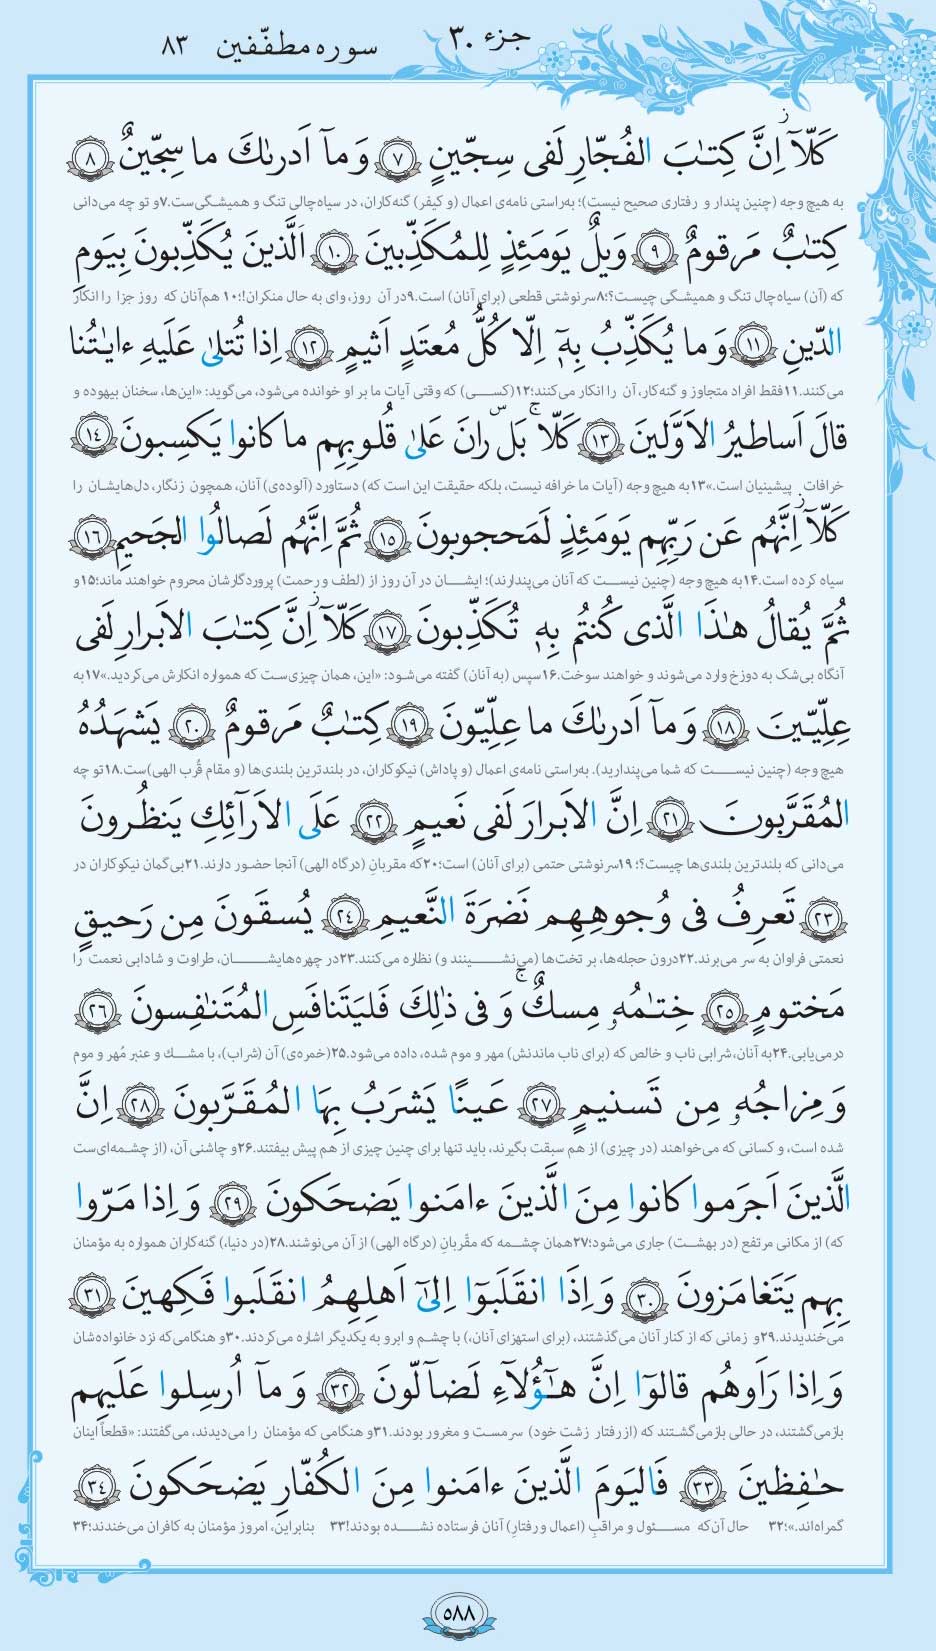 جزء ۳۰
سوره مطفّفین ۸۳
كَلّآ اِنَّ كِتٰبَ الفُجّارِ لَفى سِجّينٍ ﴿۷﴾ وَ مآ اَدرىٰكَ ما سِجّينٌ ﴿۸﴾
به هیچ وجه (چنین پندار و رفتاری صحیح نیست)؛ به‌راستی نامه‌ی اعمال (و کیفر) گنه‌کاران، در سیاه‌چالی تنگ و همیشگی‌ست.۷و تو چه می‌دانی
كِتٰبٌ مَرقومٌ ﴿۹﴾ وَيلٌ يَومَئِذٍ لِلمُكَذِّبينَ ﴿۱۰﴾ اَلَّذينَ يُكَذِّبونَ بِيَومِ
که (آن) سیاه‌چال تنگ و همیشگی چیست؟؛۸سرنوشتی قطعی (برای آنان) است.۹در آن روز، وای به حال منکران!؛۱۰ هم‌آنان که روز جزا را انکار
الدّينِ ﴿۱۱﴾ وَ ما يُكَذِّبُ بِهٖٓ اِلّا كُلُّ مُعتَدٍ اَثيمٍ ﴿۱۲﴾ اِذا تُتلىٰ عَلَيهِ ءايٰتُنا
می‌کنند.۱۱فقط افراد متجاوز و گنه‌کار، آن را انکار می‌کنند؛۱۲(کسی) که وقتی آیات ما بر او خوانده می‌شود، می‌گوید: «این‌ها، سخنان بیهوده و
قالَ اَساطيرُ الاَوَّلينَ ﴿۱۳﴾ كَلّا ۖ بَل ۜ رانَ عَلىٰ قُلوبِهِم ما كانوا يَكسِبونَ ﴿۱۴﴾
خرافات پیشینیان است.»۱۳به هیچ وجه (آیات ما خرافه نیست، بلکه حقیقت این است که) دستاورد (آلوده‌ی) آنان، همچون زنگار، دل‌هایشان را
كَلّآ اِنَّهُم عَن رَبِّهِم يَومَئِذٍ لَمَحجوبونَ ﴿۱۵﴾ ثُمَّ اِنَّهُم لَصالُوا الجَحيمِ ﴿۱۶﴾
سیاه کرده است.۱۴به هیچ وجه (چنین نیست که آنان می‌پندارند)؛ ایشان در آن روز از (لطف و رحمت) پروردگارشان محروم خواهند ماند؛۱۵و
ثُمَّ يُقالُ هٰذَا الَّذى كُنتُم بِهٖ تُكَذِّبونَ ﴿۱۷﴾ كَلّآ اِنَّ كِتٰبَ الاَبرارِ لَفى
آنگاه بی‌شک به دوزخ وارد می‌شوند و خواهند سوخت.۱۶سپس (به آنان) گفته می‌شود: «این، همان چیزی‌ست که همواره انکارش می‌کردید.»۱۷به
عِلِّيّينَ ﴿۱۸﴾ وَ مآ اَدرىٰكَ ما عِلِّيّونَ ﴿۱۹﴾ كِتٰبٌ مَرقومٌ ﴿۲۰﴾ يَشهَدُهُ
هیچ وجه (چنین نیست که شما می‌پندارید). به‌راستی نامه‌ی اعمال (و پاداش) نیکوکاران، در بلندترین بلندی‌ها (و مقام قُرب الهی)ست.۱۸تو چه
المُقَرَّبونَ ﴿۲۱﴾ اِنَّ الاَبرارَ لَفى نَعيمٍ ﴿۲۲﴾ عَلَى الاَرآئِكِ يَنظُرونَ
می‌دانی که بلندترین بلندی‌ها چیست؟؛ ۱۹سرنوشتی حتمی (برای آنان) است؛۲۰که مقربانِ (درگاه الهی) آنجا حضور دارند.۲۱بی‌گمان نیکوکاران در
﴿۲۳﴾ تَعرِفُ فى وُجوهِهِم نَضرَةَ النَّعيمِ ﴿۲۴﴾ يُسقَونَ مِن رَحيقٍ
نعمتی فراوان به سر می‌برند.۲۲درون حجله‌ها، بر تخت‌ها (می‌نشینند و) نظاره می‌کنند.۲۳در چهره‌هایشان، طراوت و شادابی نعمت را
مَختومٍ ﴿۲۵﴾ خِتٰمُهٗ مِسكٌ ۚ وَ فى ذٰلِكَ فَليَتَنافَسِ المُتَنٰفِسونَ ﴿۲۶﴾
درمی‌یابی.۲۴به آنان، شرابی ناب و خالص که (برای ناب ماندنش) مهر و موم شده، داده می‌شود.۲۵(خمره‌ی) آن (شراب)، با مشك و عنبر مُهر و موم
وَ مِزاجُهٗ مِن تَسنيمٍ ﴿۲۷﴾ عَينًا يَشرَبُ بِهَا المُقَرَّبونَ ﴿۲۸﴾ اِنَّ
شده است، و کسانی که می‌خواهند (در چیزی) از هم سبقت بگیرند، باید تنها برای چنین چیزی از هم پیش بیفتند.۲۶و چاشنی آن، (از چشمه‌ای‌ست
الَّذينَ اَجرَموا كانوا مِنَ الَّذينَ ءامَنوا يَضحَكونَ ﴿۲۹﴾ وَ اِذا مَرّوا
که) از مکانی مرتفع (در بهشت) جاری می‌شود؛۲۷همان چشمه که مقّربانِ (درگاه الهی) از آن می‌نوشند.۲۸(در دنیا)، گنه‌کاران همواره به مؤمنان
بِهِم يَتَغامَزونَ ﴿۳۰﴾ وَ اِذَا انقَلَبوٓا اِلىٰٓ اَهلِهِمُ انقَلَبوا فَكِهينَ ﴿۳۱﴾
می‌خندیدند.۲۹و زمانی که از کنار آنان می‌گذشتند، (برای استهزای آنان،) با چشم و ابرو به یکدیگر اشاره می‌کردند.۳۰و هنگامی‌که نزد خانواده‌شان
وَ اِذا رَاَوهُم قالوٓا اِنَّ هٰٓؤُلآءِ لَضآلّونَ ﴿۳۲﴾ وَ مآ اُرسِلوا عَلَيهِم
بازمی‌گشتند، در حالی بازمی‌گشتند که (از رفتار زشت خود) سرمست و مغرور بودند.۳۱و هنگامی که مؤمنان را می‌دیدند، می‌گفتند: «قطعاً اینان
حٰفِظينَ ﴿۳۳﴾ فَاليَومَ الَّذينَ ءامَنوا مِنَ الكُفّارِ يَضحَكونَ ﴿۳۴﴾
گمراه‌اند.»؛۳۲ حال آن‌که مسئول و مراقبِ (اعمال و رفتارِ) آنان فرستاده نشده بودند!۳۳ بنابراین، امروز مؤمنان به کافران می‌خندند؛۳۴
۵۸۸